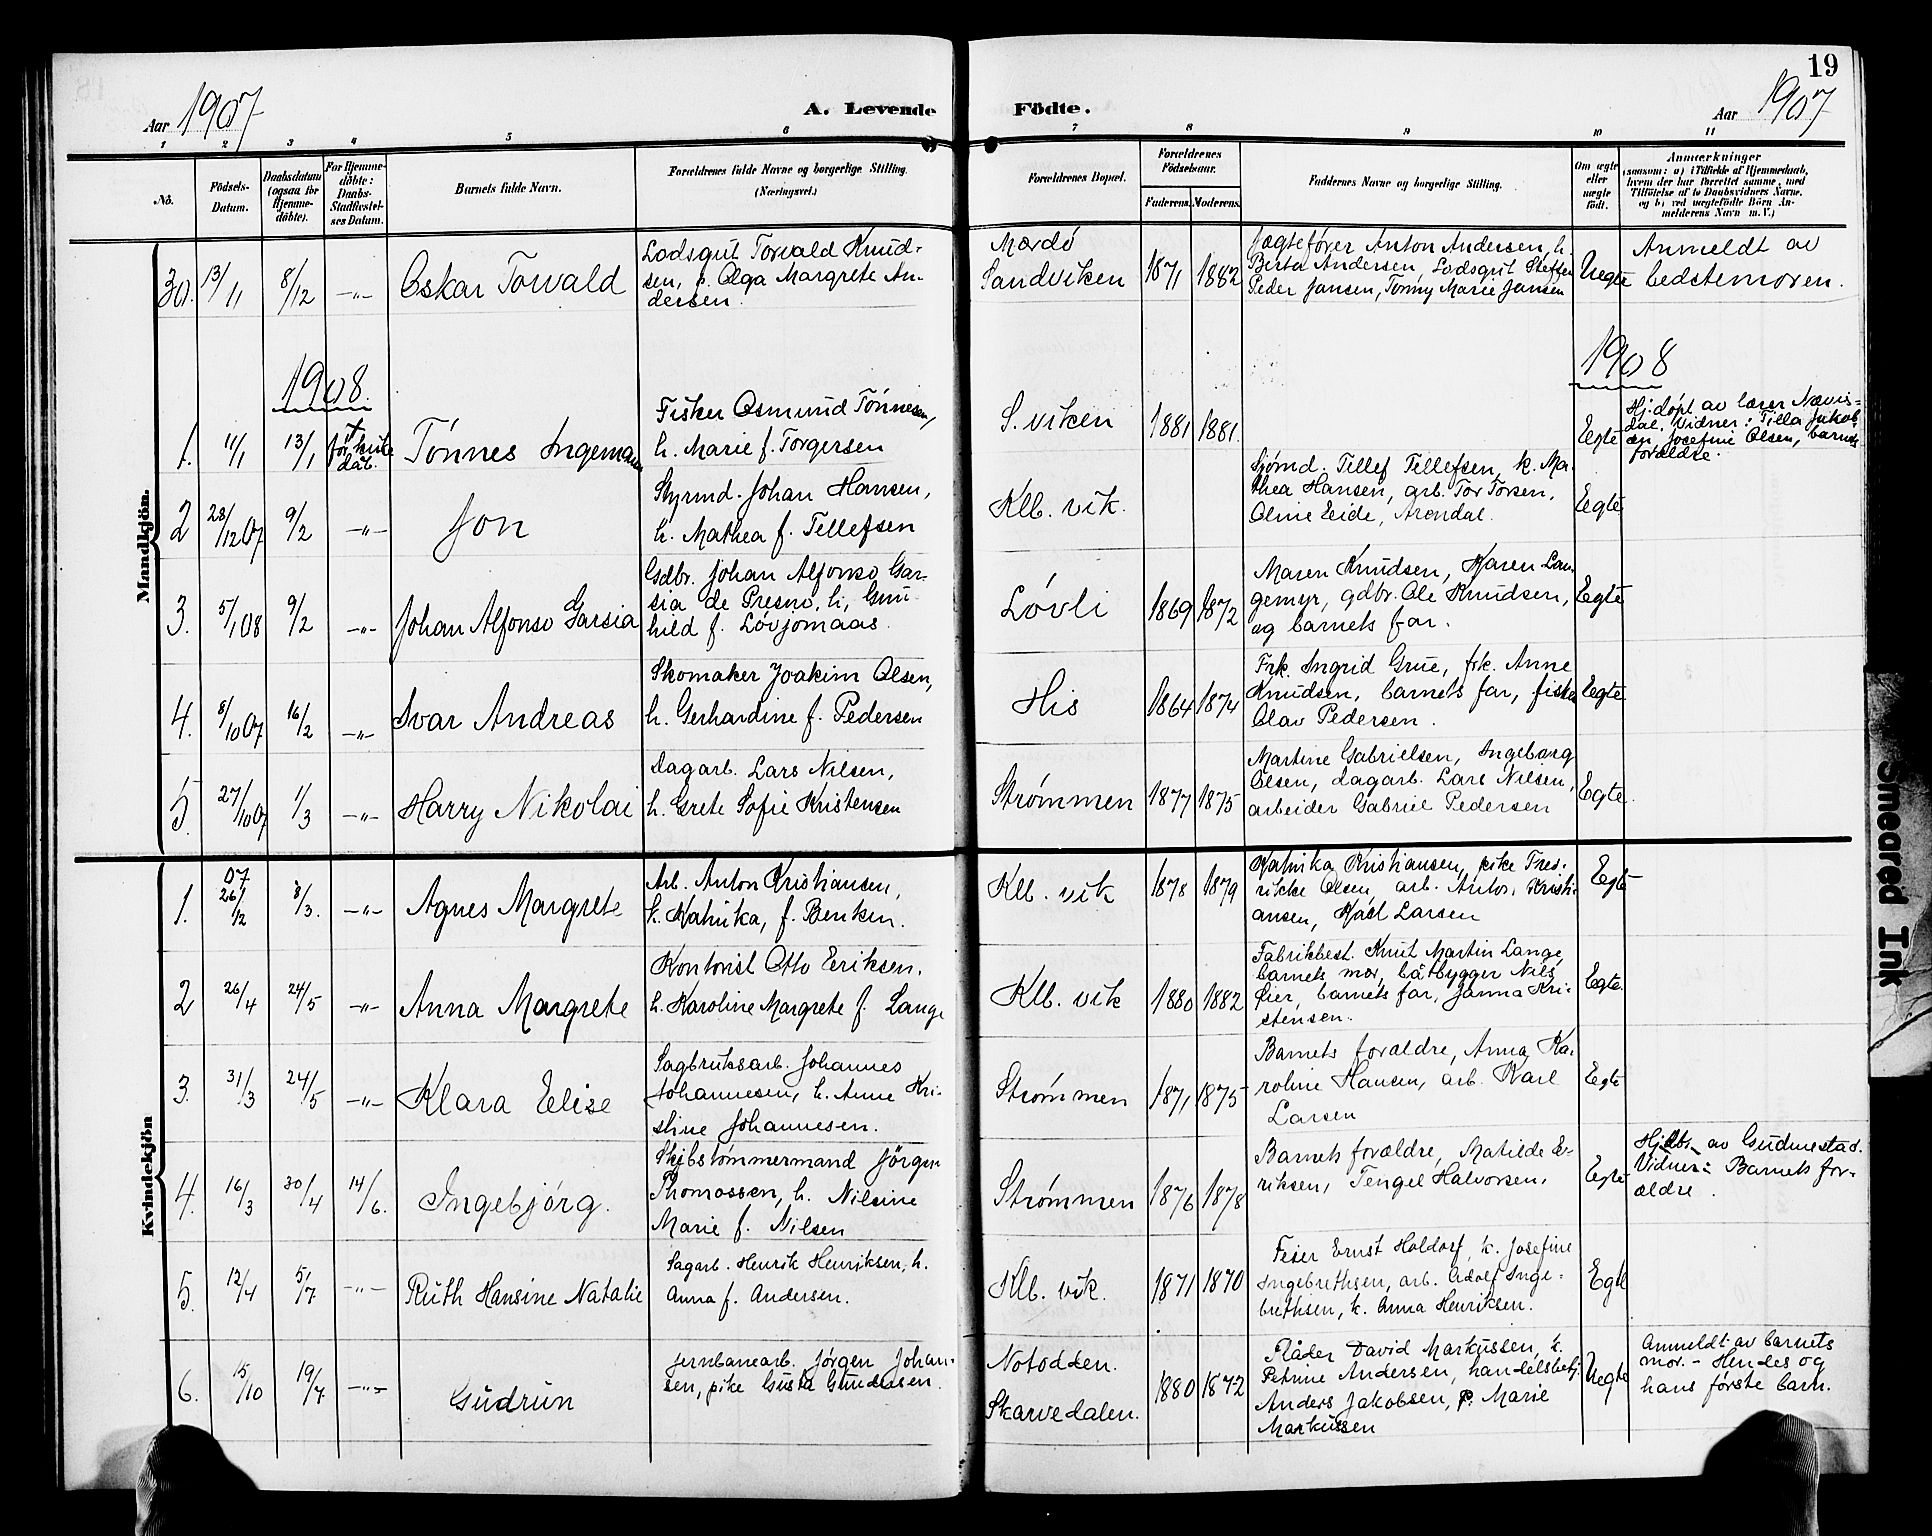 19
Aar 1907
A. Levende Födte.
Aar 1907
1 2 3 4 5 6 7 8 9 10 11
No.
Födsels-
Datum.
Daabsdatum
(ogsaa for
Hjemme-
döbte).
For Hjemme-
döbte:
Daabs-
Stadfæstel-
ses Datum.
Barnets fulde Navn.
Forældrenes fulde Navne og borgerlige Stilling.
(Næringsvei.)
Forældrenes Bopæl.
Forældrenes
Födselsaar.
Faderens.
Moderens.
Faddernes Navne og borgerlige Stilling.
Om ægte
eller
uægte
födt.
Anmærkninger
(saasom: a) i Tilfælde af Hjemmedaab,
hvem der har forrettet samme, med
Tilföielse af to Daabsvidners Navne,
og b) ved uægtefödte Börn An-
melderens Navn m. V.)
Mandkjön.
30. 13/11 8/12 -„- Oskar Torvald
Lodsgut Torvald Knud-
sen, p. Olga Margrete An-
dersen.
Mærdö
Sandviken
1871 1882
Jægtefører Anton Andersen, h.
Berta Andersen, Lodsgut Steffen
Peder Jansen, Tonny Marie Jansen
Uegte
Anmeldt av
bedstemoren.
1908.
1908
1. 11/1 13/1
Tönnes Ingeman
Fisker Osmund Tönnesen,
h. Marie f. Torgersen
S. viken
1881 1881.
Egte
Hj. døpt av lærer Nævis-
dal. Vidner: Tilla Jakob-
sen, Josefine Olsen, barnets
forældre.
2 28/12 07 9/2 -„- Jon
Styrmd. Johan Hansen,
h. Mathea f. Tellefsen
Klb. vik.
Sjømd. Tellef Tellefsen, k. Ma-
thea Hansen, arb. Tor Torsen,
Oline Eide, Arendal.
Egte
3. 5/1 08 9/2 -„- Johan Alfonso Garsia
Gdbr. Johan Alfonso Gar-
sia de Presno, h. Gun-
hild f. Løvjomaas.
Løvli
1869 1872
Maren Knudsen, Karen Lan-
gemyr, gdbr. Ole Knudsen,
og barnets far.
Egte
4. 8/10 07 16/2 -„- Ivar Andreas
Skomaker Joakim Olsen,
h. Gerhardine f. Pedersen
His
1864 1874
Frk. Ingrid Grue, frk. Anne
Knudsen, barnets far, fisker
Olav Pedersen.
Egte
5. 27/10 07 1/3 -„- Harry Nikolai
Dagarb. Lars Nilsen,
h. Grete Sofie Kristensen
Strømmen
1877 1875
Martine Gabrielsen, Ingeborg
Olsen, dagarb. Lars Nilsen,
arbeider Gabriel Pedersen
Egte.
Kvindekjön
1. 07 26/12 8/3. -„- Agnes Margrete
Arb. Anton Kristiansen,
h. Katinka, f. Benken.
Klb. vik
1878 1879
Katinka Kristiansen, pike Fred-
rikke Olsen, arb. Anton Kristi-
ansen, Karl Larsen
Egte
2 26/4 24/5 -„- Anna Margrete
Kontorist Otto Eriksen,
h. Karoline Margrete f. Lange
Klb. vik
1880 1882
Fabrikbest. Knut Martin Lange,
barnets mor, båtbygger Nils
Eier, barnets far, Janna Kri-
stensen.
Egte.
3. 31/3 24/5 -„- Klara Elise
Sagbruksarb. Johannes
Johannesen, h. Anne Kri-
stine Johannesen.
Strømmen
1871 1875
Barnets forældre, Anna Ka-
roline Hansen, arb. Karl
Larsen
Egte
4. 16/3 30/4 14/6. Ingebjörg.
Skibstømmermand Jörgen
Thomassen, h. Nilsine
Marie f. Nilsen
Strømmen
1876 1878
Barnets forældre, Matilde E-
riksen, Tengel Halvorsen,
Egte
Hj.db. av Gudmestad.
Vidner: Barnets for-
ældre.
5. 12/4 5/7 -„- Ruth Hansine Natalie
Sagarb. Henrik Henriksen, h.
Anna f. Andersen.
Klb. vik.
1871 1870
Feier Ernst Holdorf, k. Josefine
Ingebrethsen, arb. Adolf Inge-
brethsen, k. Anna Henriksen.
Egte
6. 15/10 19/7 -„- Gudrun
Jernbanearb. Jørgen Johan-
sen, pike Gusta Gundersen.
Notodden.
Skarvedalen.
1880 1872
Flåder David Markussen, k.
Petrine Andersen, handelsbetj.
Anders Jakobsen, p. Marie
Markussen
Uegte
Anmeldt av barnets
mor. - Hendes og
hans første barn.
Smeared Ink